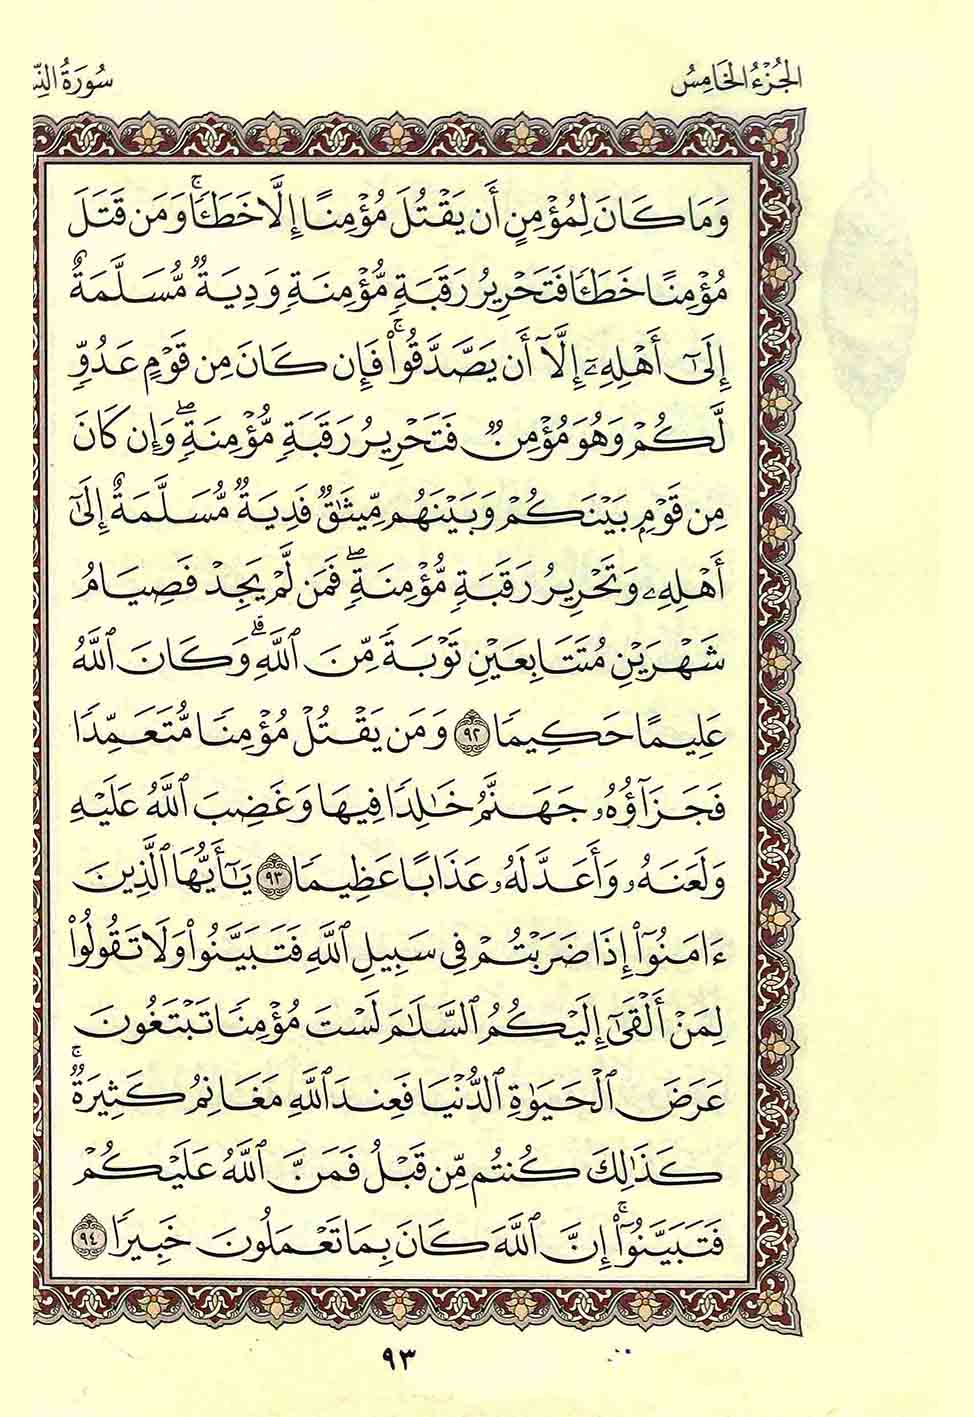 الجُزْءُ الخَامِسُ
سُورَةُ النِّس
وَمَا كَانَ لِمُؤْمِنٍ أَن يَقْتُلَ مُؤْمِنًا إِلَّا خَطَـًٔاۚ وَمَن قَتَلَ
مُؤْمِنًا خَطَـًٔا فَتَحْرِيرُ رَقَبَةٍ مُّؤْمِنَةٍ وَدِيَةٌ مُّسَلَّمَةٌ
إِلَىٰٓ أَهْلِهِۦٓ إِلَّآ أَن يَصَّدَّقُوا۟ۚ فَإِن كَانَ مِن قَوْمٍ عَدُوٍّ
لَّكُمْ وَهُوَ مُؤْمِنٌ فَتَحْرِيرُ رَقَبَةٍ مُّؤْمِنَةٍۖ وَإِن كَانَ
مِن قَوْمٍۭ بَيْنَكُمْ وَبَيْنَهُم مِّيثَـٰقٌ فَدِيَةٌ مُّسَلَّمَةٌ إِلَىٰٓ
أَهْلِهِۦ وَتَحْرِيرُ رَقَبَةٍ مُّؤْمِنَةٍۖ فَمَن لَّمْ يَجِدْ فَصِيَامُ
شَهْرَيْنِ مُتَتَابِعَيْنِ تَوْبَةً مِّنَ ٱللَّهِۗ وَكَانَ ٱللَّهُ
عَلِيمًا حَكِيمًا ٩٢ وَمَن يَقْتُلْ مُؤْمِنًا مُّتَعَمِّدًا
فَجَزَآؤُهُۥ جَهَنَّمُ خَـٰلِدًا فِيهَا وَغَضِبَ ٱللَّهُ عَلَيْهِ
وَلَعَنَهُۥ وَأَعَدَّ لَهُۥ عَذَابًا عَظِيمًا ٩٣ يَـٰٓأَيُّهَا ٱلَّذِينَ
ءَامَنُوٓا۟ إِذَا ضَرَبْتُمْ فِى سَبِيلِ ٱللَّهِ فَتَبَيَّنُوا۟ وَلَا تَقُولُوا۟
لِمَنْ أَلْقَىٰٓ إِلَيْكُمُ ٱلسَّلَـٰمَ لَسْتَ مُؤْمِنًا تَبْتَغُونَ
عَرَضَ ٱلْحَيَوٰةِ ٱلدُّنْيَا فَعِندَ ٱللَّهِ مَغَانِمُ كَثِيرَةٌۚ
كَذَٰلِكَ كُنتُم مِّن قَبْلُ فَمَنَّ ٱللَّهُ عَلَيْكُمْ
فَتَبَيَّنُوٓا۟ۚ إِنَّ ٱللَّهَ كَانَ بِمَا تَعْمَلُونَ خَبِيرًا ٩٤
٩٣